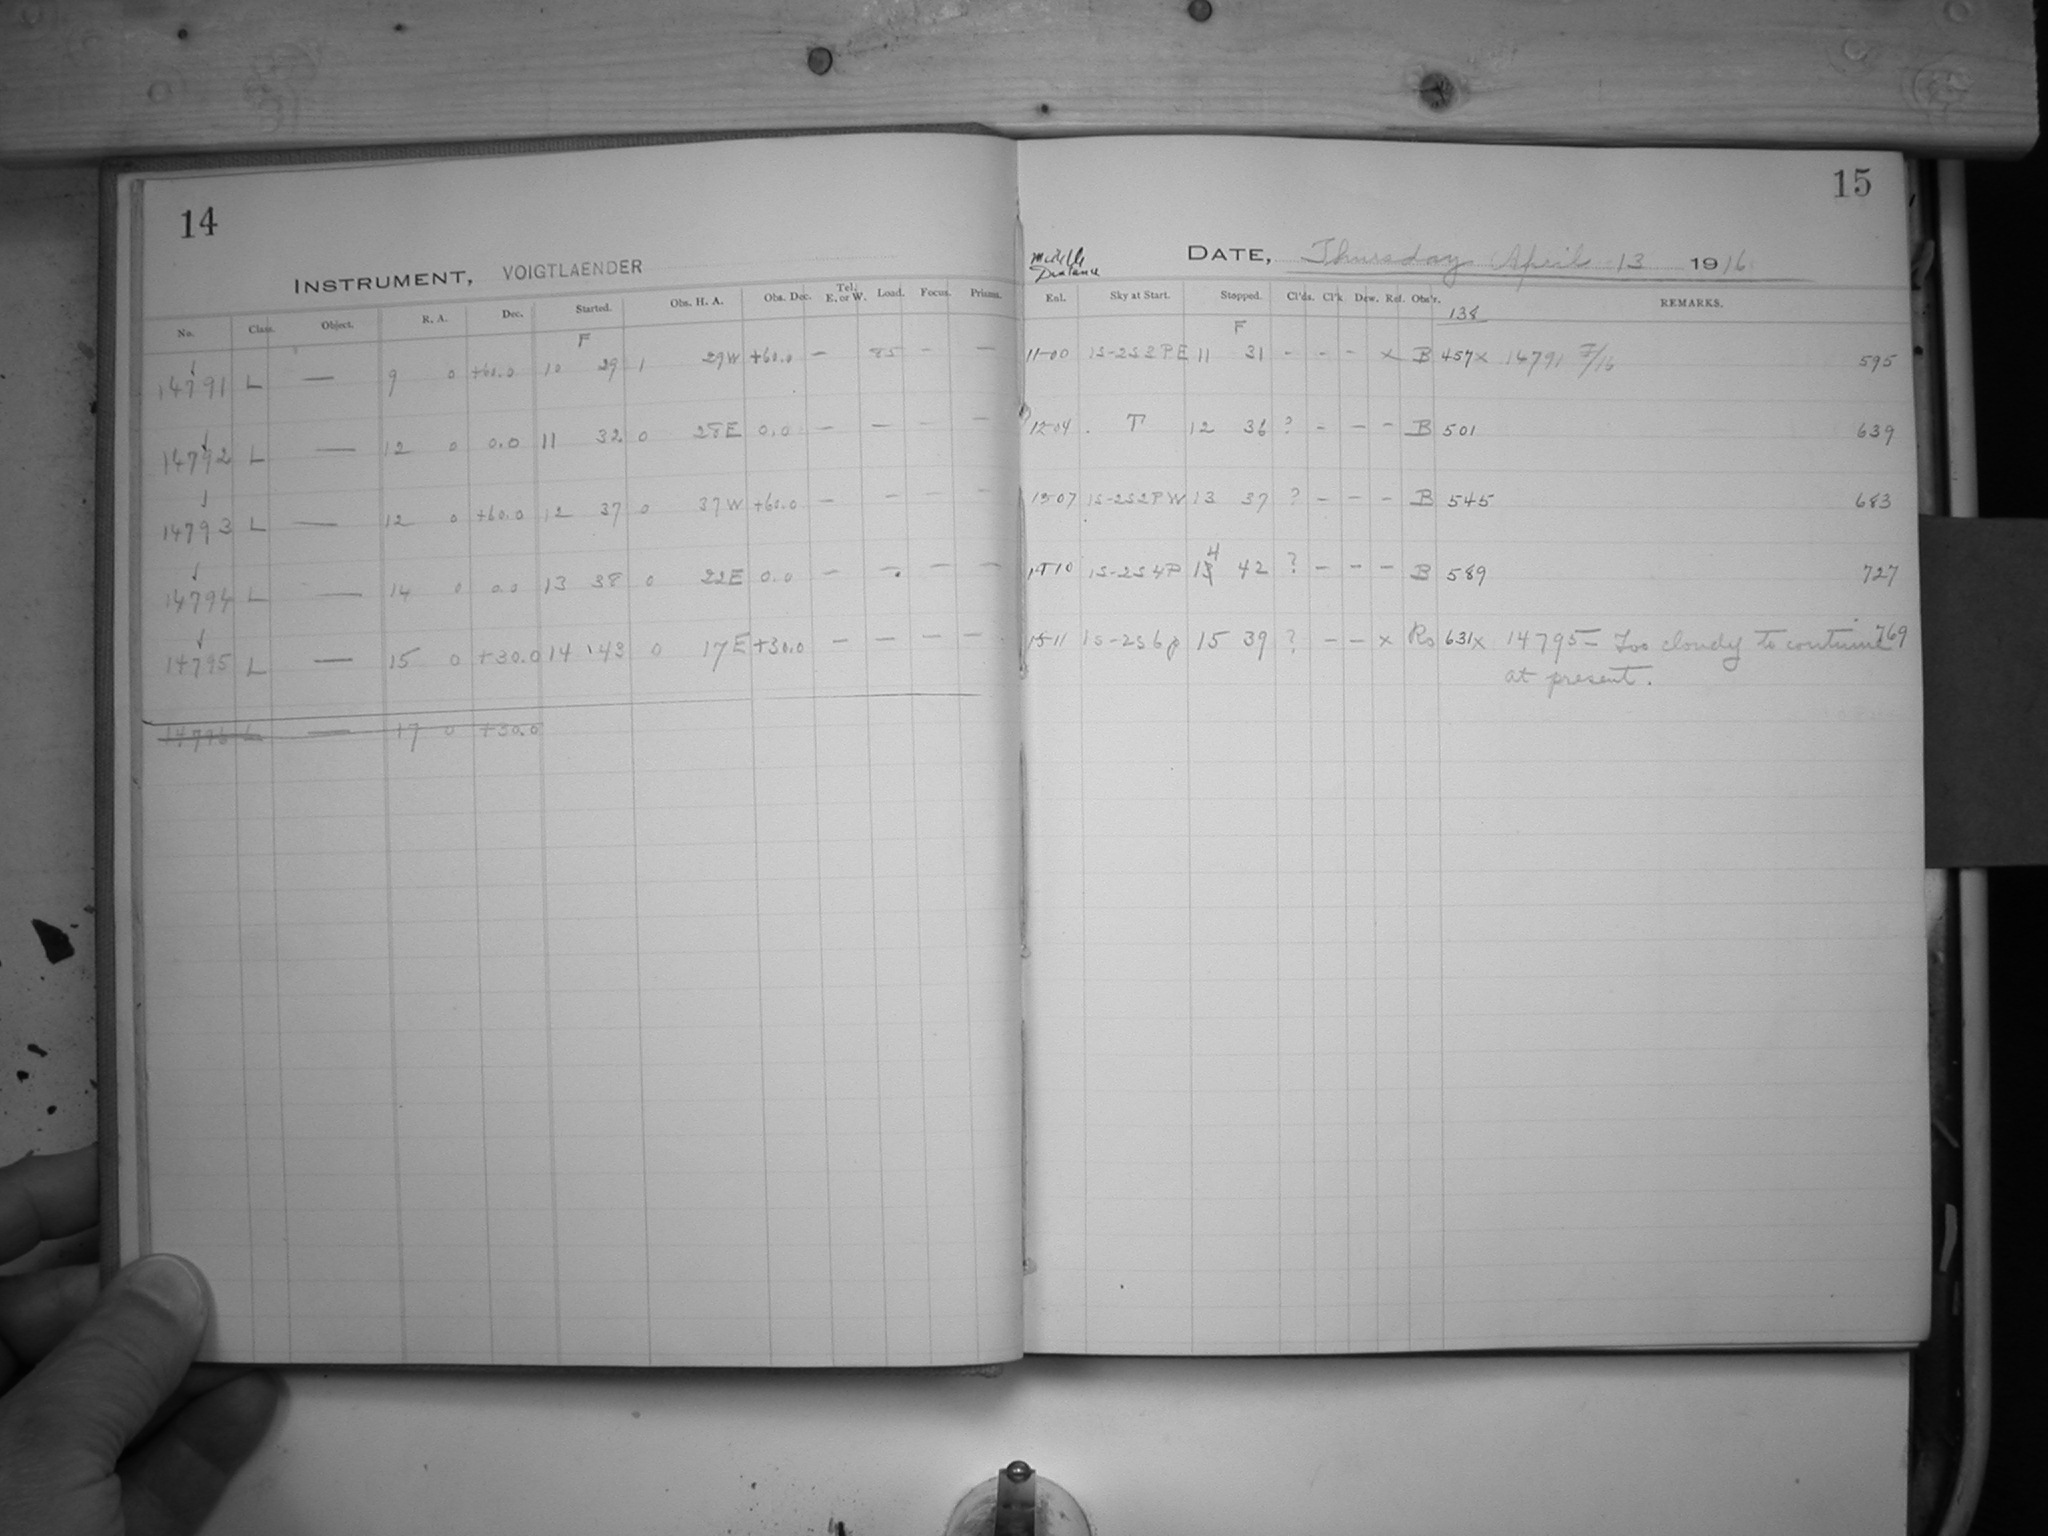 14
INSTRUMENT, VOIGTLAENDER
No. Class. Object. R. A. Dec. Started. Obs. H. A. Obs. Dec. Tel. E. or W. Load. Focus. Prisms.
F
14791 L — 9 0 +60.0 10 29 1 29W +60.0 — 85 - —
14792 L — 12 0 0.0 11 32 0 28E 0.0 — — - —
14793 L — 12 0 +60.0 12 37 0 37W +60.0 — - - -
14794 L — 14 0 0.0 13 38 0 22E 0.0 — — — —
14795 L — 15 0 +30.0 14 43 0 17E +30.0 — — — —
14796 L — 17 0 +30.0
15
Middle
Distance
DATE, Thursday April 13 1916
Enl. Sky at Start. Stopped. Cl'ds. Cl'k. Dew. Ref. Obs'r. REMARKS.
138
F
11-00 1S-2S2PE 11 31 - - - x B 457x 14791 F/16 595
12-04 T 12 36 ? - - - B 501 639
13-07 1S-2S2PW 13 37 ? - - - B 545 683
4
1S-2S4P 13 42 ? - - - B 589 727
15-11 1S-2S6p 15 39 ? - - x Ro 631x 14795 = Too cloudy to continue 769
at present.